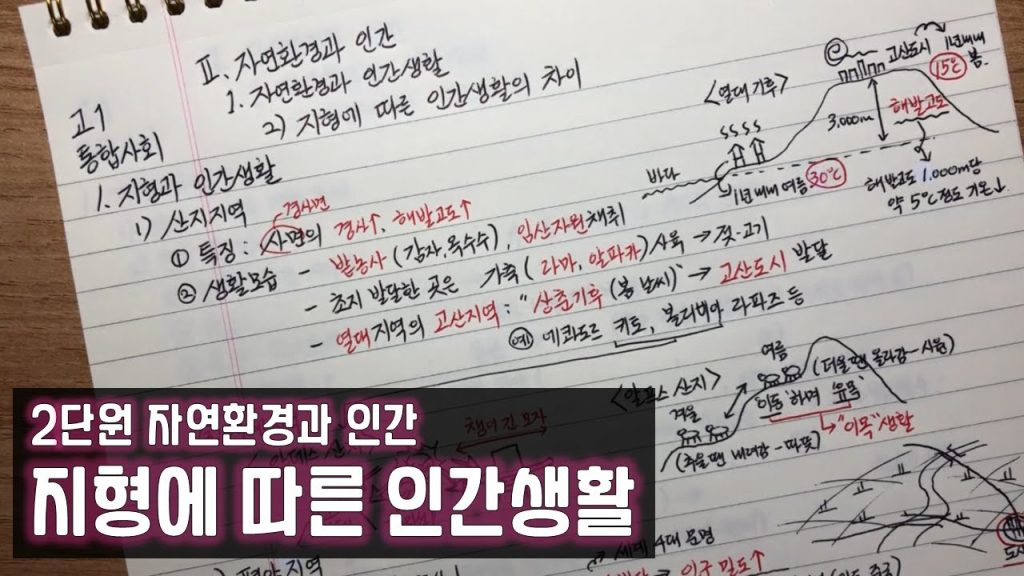 고1
통합사회
Ⅱ. 자연환경과 인간
1. 자연환경과 인간생활
2) 지형에 따른 인간생활의 차이
1. 지형과 인간생활
1) 산지지역
경사면
① 특징: 사면의 경사↑, 해발고도↑
② 생활모습 - 밭농사(감자, 옥수수), 임산자원채취
- 초지 발달한 곳은 가축(라마, 알파카)사육 → 젖·고기
- 열대지역의 고산지역: "상춘기후(봄 날씨)" → 고산도시 발달
예 에콰도르 키토, 볼리비아 라파즈 등
<열대기후>
고산도시
1년내내 봄.
15℃
해발고도
3,000m
바다
1년내내 여름 30℃
해발고도 1,000m당
약 5℃정도 기온↓
<알프스 산지>
여름
(더울땐 올라감-시원)
겨울
이동하며 유목
"이목"생활
(추울땐 내려감-따뜻)
챙이 긴 모자
세계 4대 문명
인구밀도↑
평야지역
2단원 자연환경과 인간
지형에 따른 인간생활